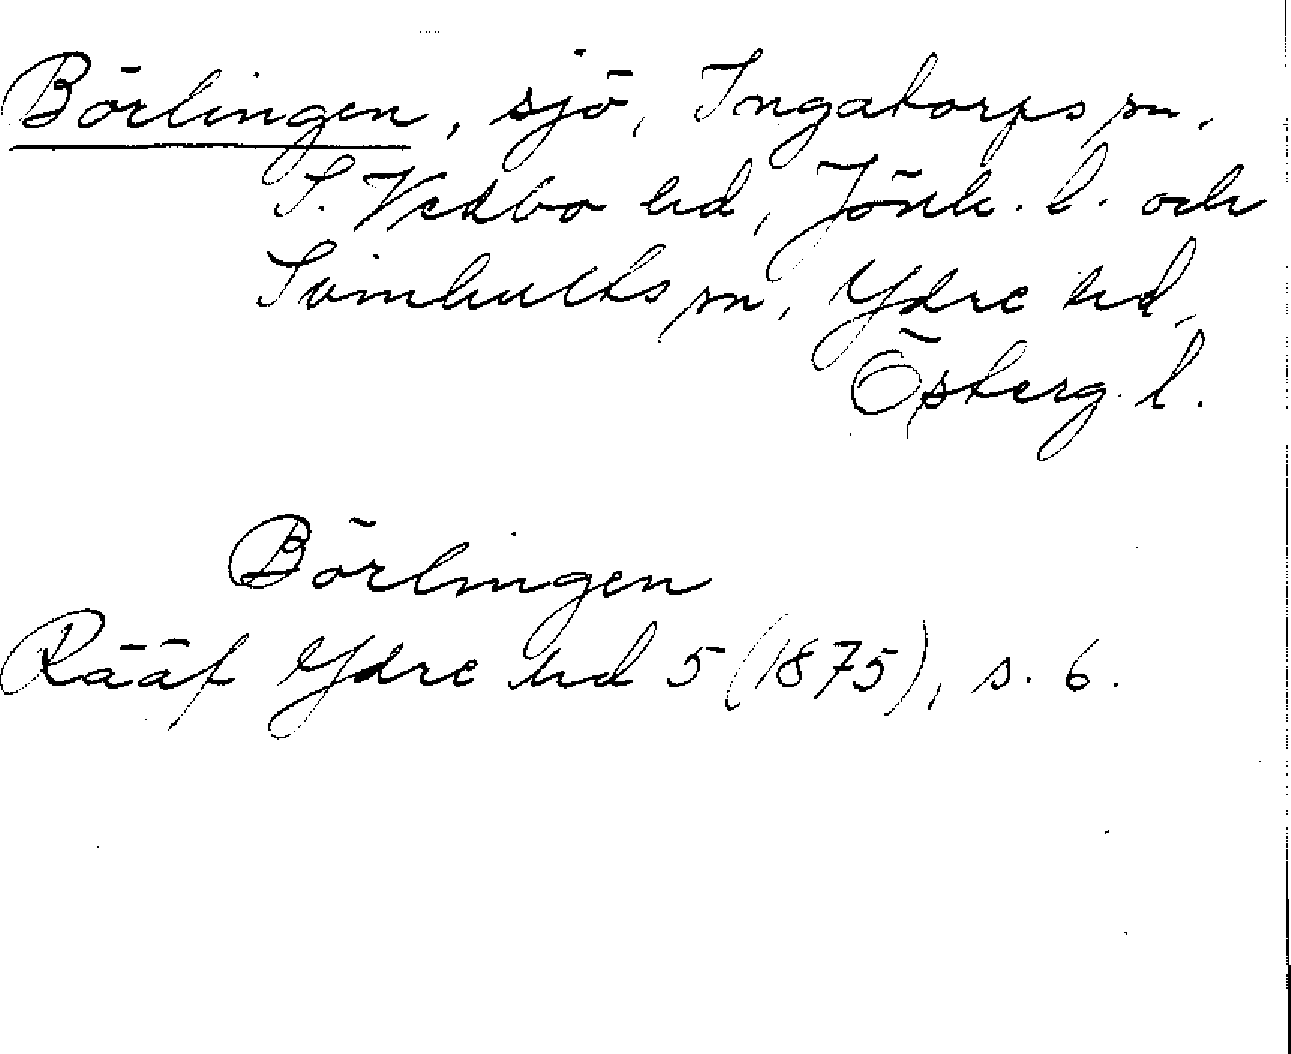 Börlingen, sjö, Ingatorps sn,
S. Vedbo hd, Jönk. l. och
Svinhults sn, Ydre hd,
Österg. l.
Börlingen
Rääf Ydre hd 5 (1875), s. 6.